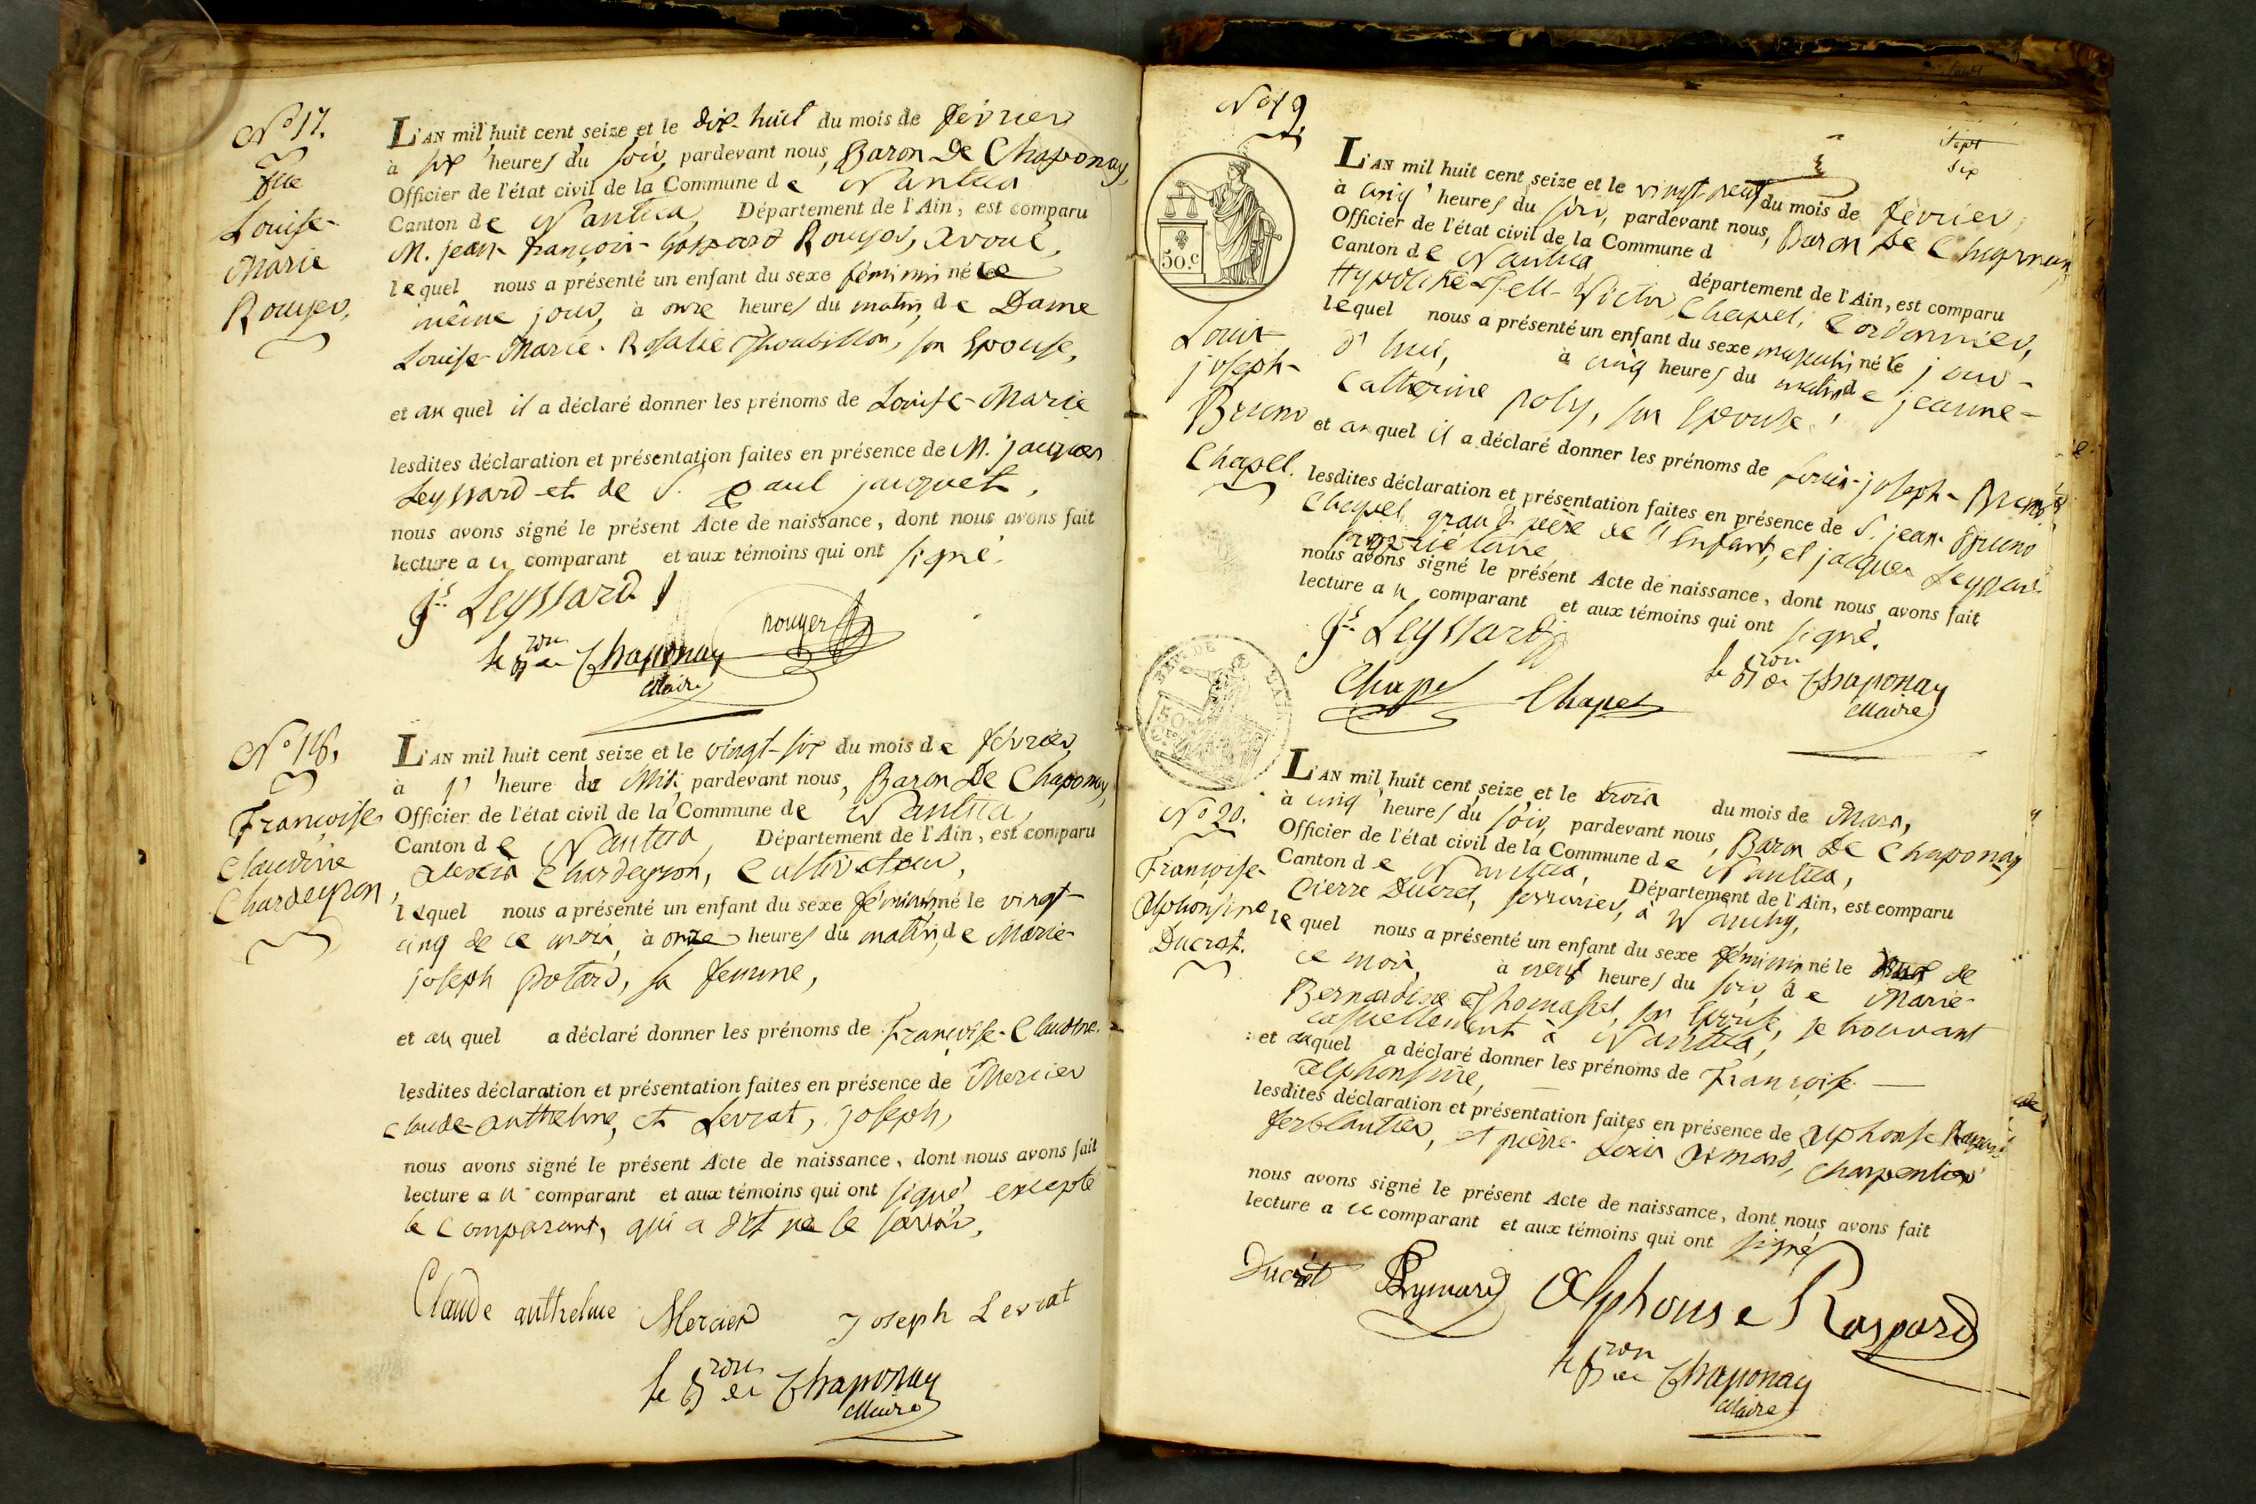 N.o 17.
Louise-
Marie
Rouyer,
L'AN mil huit cent seize et le dix-huit du mois de février
à six heures du soir, pardevant nous, Baron De Chaponay,
Officier de l'état civil de la Commune de Nantua
Canton de Nantua, Département de l'Ain, est comparu
M. jean-françois-Gaspard Rouyer, avoué,
lequel nous a présenté un enfant du sexe féminin né le
même jour, à onze heures du matin, de Dame
Louise-Marie-Rosalie Thoubillon, son Epouse,
et au quel il a déclaré donner les prénoms de Louise-Marie
lesdites déclaration et présentation faites en présence de M. jacques
Leyssard et de S. paul jacquet,
nous avons signé le présent Acte de naissance, dont nous avons fait
lecture au comparant et aux témoins qui ont signé.
Js. Leyssard
rouyer
le Bron de Chaponay
Maire
N.o 18.
Françoise
Claudine
Chardeyron,
L'AN mil huit cent seize et le vingt-six du mois de février
à heure de Midi, pardevant nous, Baron De Chaponay,
Officier de l'état civil de la Commune de Nantua,
Canton de Nantua, Département de l'Ain, est comparu
alexis Chardeyron, Cultivateur,
lequel nous a présenté un enfant du sexe féminin né le vingt-
cinq de ce mois, à onze heures du matin, de Marie-
joseph potard, sa femme,
et au quel a déclaré donner les prénoms de Françoise-Claudine.
lesdites déclaration et présentation faites en présence de Mercier
Claude-anthelme, et Levrat, joseph,
nous avons signé le présent Acte de naissance, dont nous avons fait
lecture au comparant et aux témoins qui ont signé excepté
le comparant, qui a dit ne le savoir.
Claude anthelme Mercier Joseph Levrat
le Bron de Chaponay
Maire
N.o 19
Sept
Six
50.c
Louis-
joseph-
Bruno
Chapel.
L'AN mil huit cent seize et le vingt-neuf du mois de février,
à cinq heures du soir, pardevant nous, Baron De Chaponay,
Officier de l'état civil de la Commune d
Canton de Nantua, département de l'Ain, est comparu
Hypolite-Tell-Victor Chapel, Cordonnier,
lequel nous a présenté un enfant du sexe masculin né le jour-
d'hui, à cinq heures du matin de jeanne-
Catherine poly, son Epouse,
et au quel il a déclaré donner les prénoms de Louis-joseph-Bruno
lesdites déclaration et présentation faites en présence de S. jean-Bruno
Chapel, grand père de l'Enfant, et jacques Leyssard
propriétaire
nous avons signé le présent Acte de naissance, dont nous avons fait
lecture au comparant et aux témoins qui ont signé.
Js. Leyssard
Chapel Chapel
le Bron de Chaponay
Maire
N.o 20.
Françoise-
Alphonsine
Ducret.
L'AN mil huit cent seize et le trois du mois de Mars,
à cinq heures du soir, pardevant nous, Baron De Chaponay
Officier de l'état civil de la Commune de Nantua,
Canton de Nantua, Département de l'Ain, est comparu
Pierre Ducret, serrurier, à
lequel nous a présenté un enfant du sexe féminin né le de
ce mois, à neuf heures du soir de Marie-
Bernardine Thomasset, son Epouse, se trouvant
casuellement à Nantua,
et auquel a déclaré donner les prénoms de Françoise-
alphonsine,
lesdites déclaration et présentation faites en présence de alphonse Raspard
ferblantier, et pierre-Louis aymard, Charpentier
nous avons signé le présent Acte de naissance, dont nous avons fait
lecture au comparant et aux témoins qui ont signé
Ducret Aymard Alphonse Raspard
le Bron de Chaponay
Maire